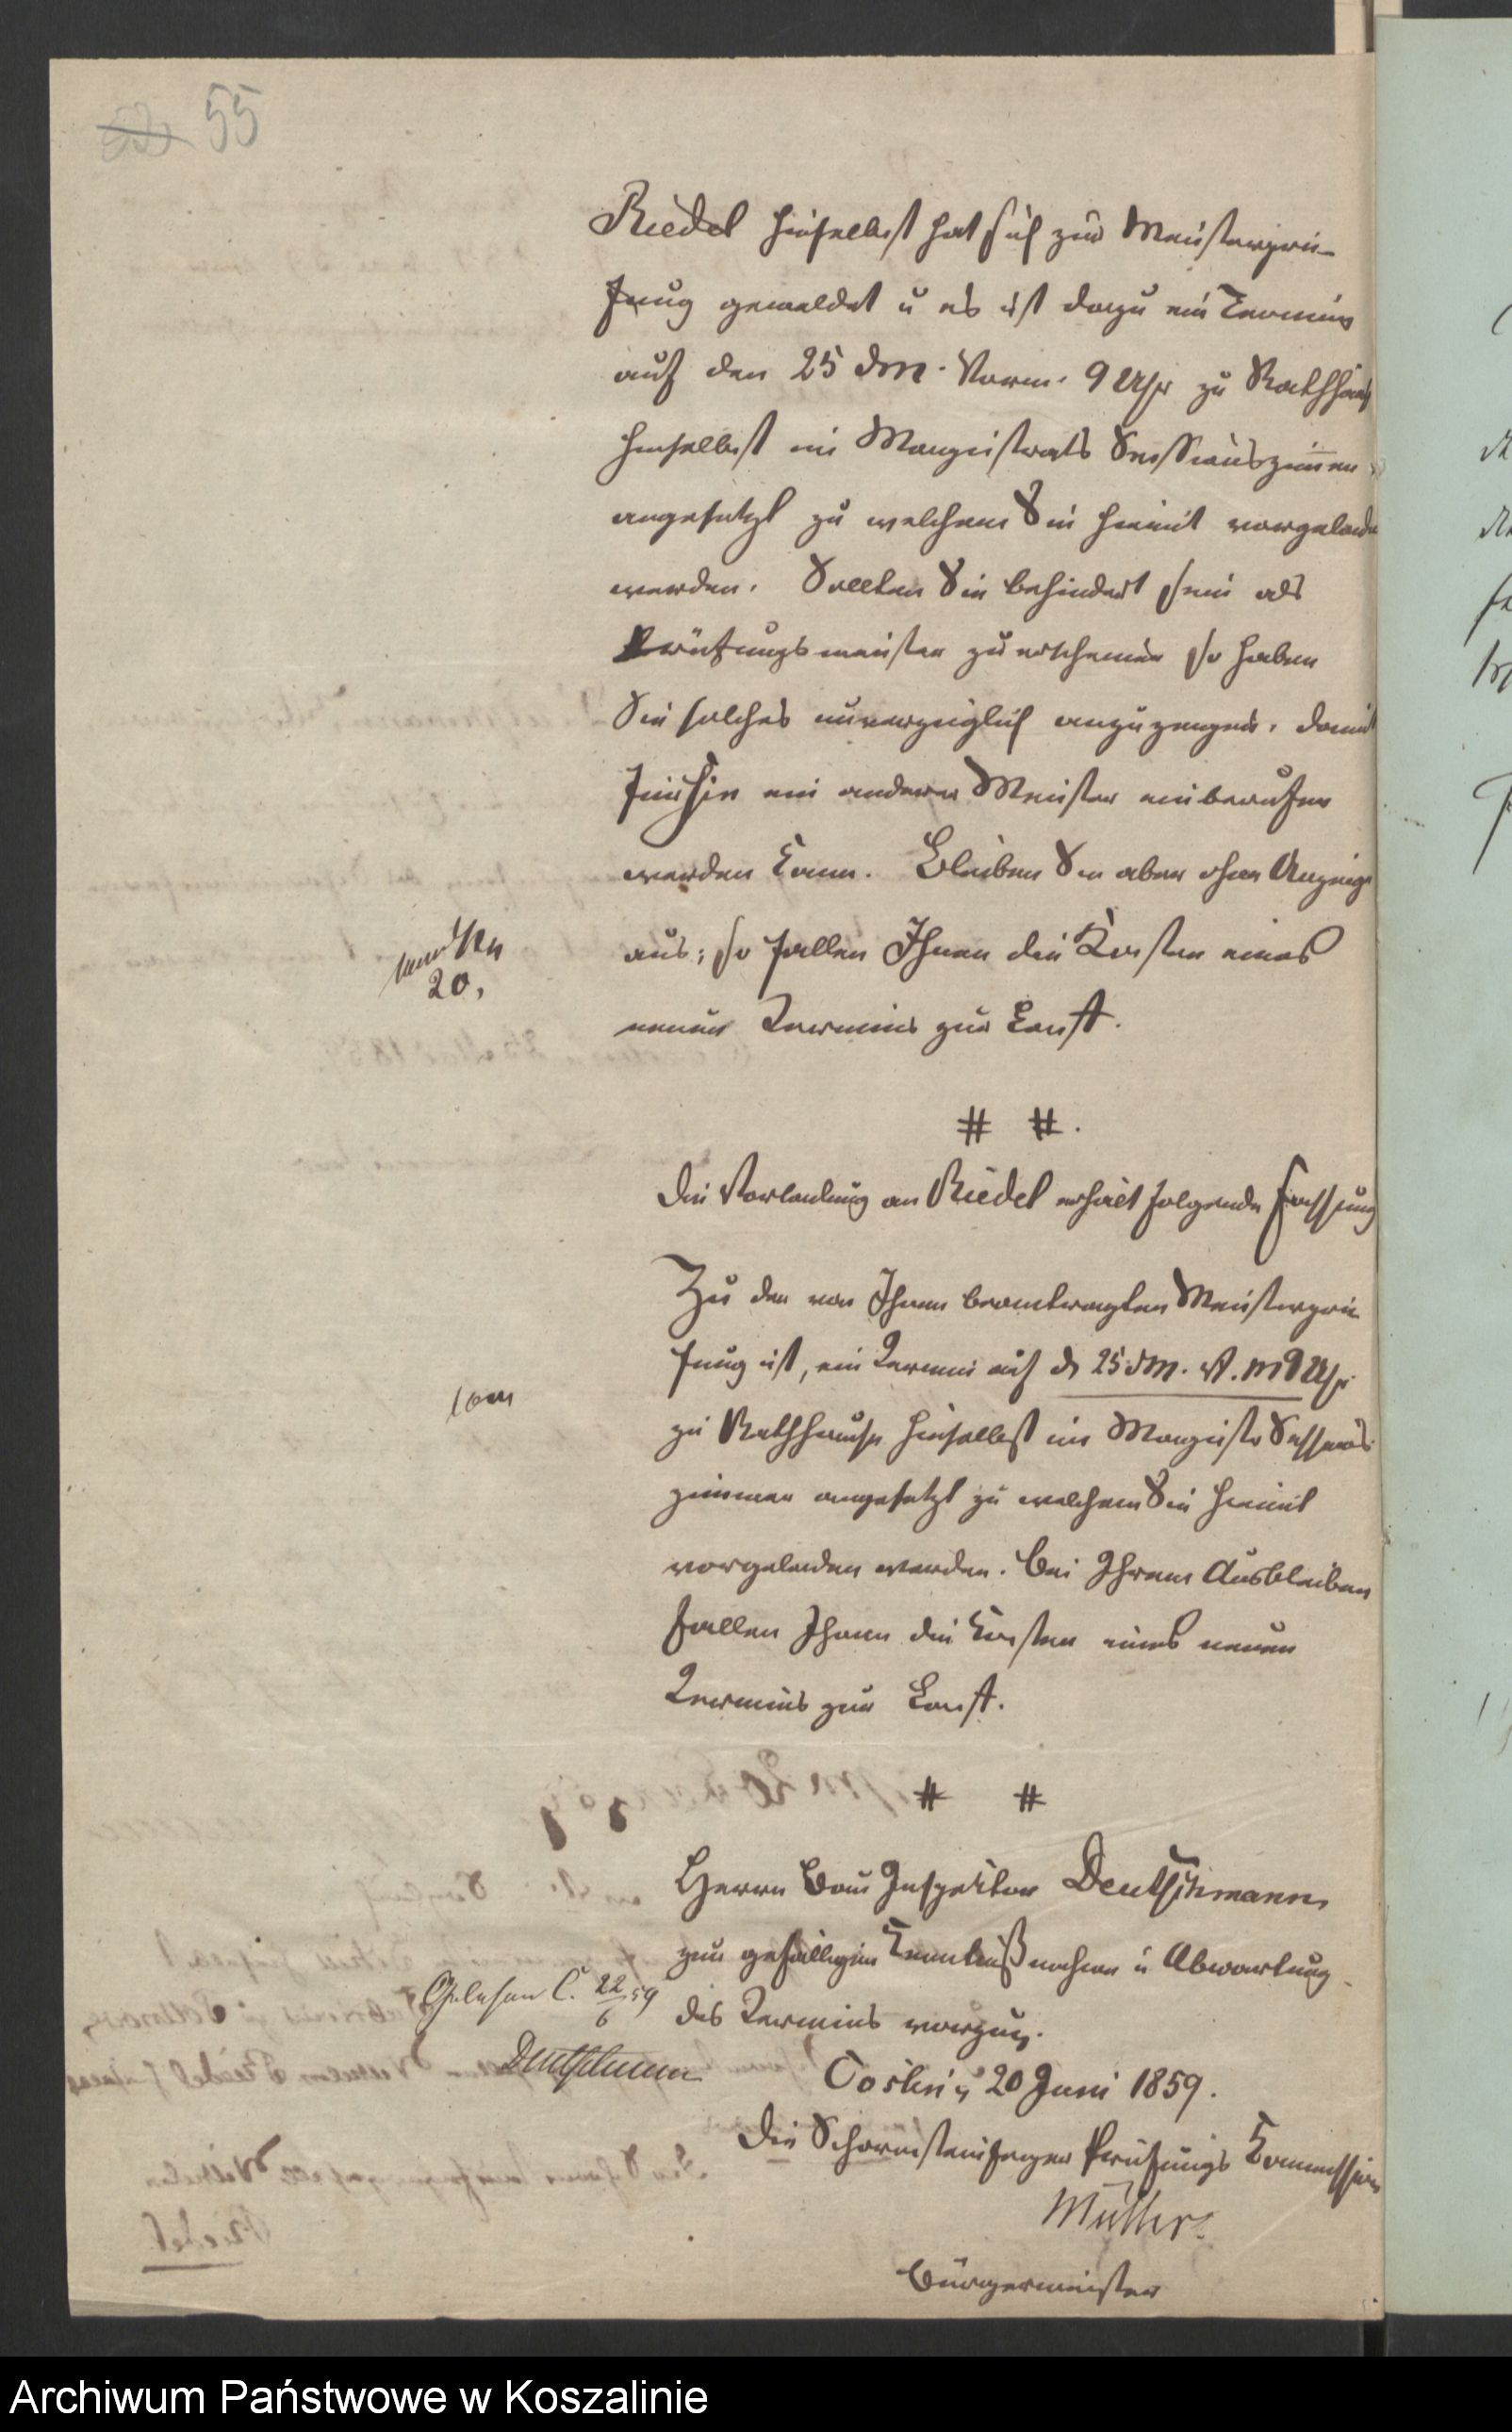 55
Riedel hieselbst hat sich zur Meisterprü-
fung gemeldet u es ist dazu ein Termin
auf den 25 d M. Vorm. 9 Uhr zu Rathhaus
hieselbst im Magistrats Sessionszimmer
angesetzt zu welchem Sie hiemit vorgeladen
werden. Sollten Sie behindert sein als
Prüfungsmeister zu erscheinen so haben
Sie solches unverzüglich anzuzeigen, damit
ein anderer Meister einberufen
werden kann. Bleiben Sie aber ohne Anzeige
aus, so fallen Ihnen die Kosten eines
neuen Termins zur Last.
20,
# #.
Die Vorladung an Riedel erhält folgende Fassung
Zu der von Ihnen beantragten Meisterprü
fung ist, ein Termin auf d 25 d M. V. M 9 Uhr
zu Rathhause hieselbst im Magistr Sessions
zimmer angesetzt zu welchem Sie hiemit
vorgeladen werden. Bei Ihrem Ausbleiben
fallen Ihnen die Kosten eines neuen
Termins zur Last.
# #
Herrn Bau Inspektor Deutschmann
zur gefälligen Kenntnißnahme u Abwartung
des Termins vorzul.
Gelesen C. 22/6 59
Deutschmann
Coslin d 20 Juni 1859.
Die Schornsteinfeger Prüfungs Kommission
Müller
Bürgermeister
Archiwum Państwowe w Koszalinie